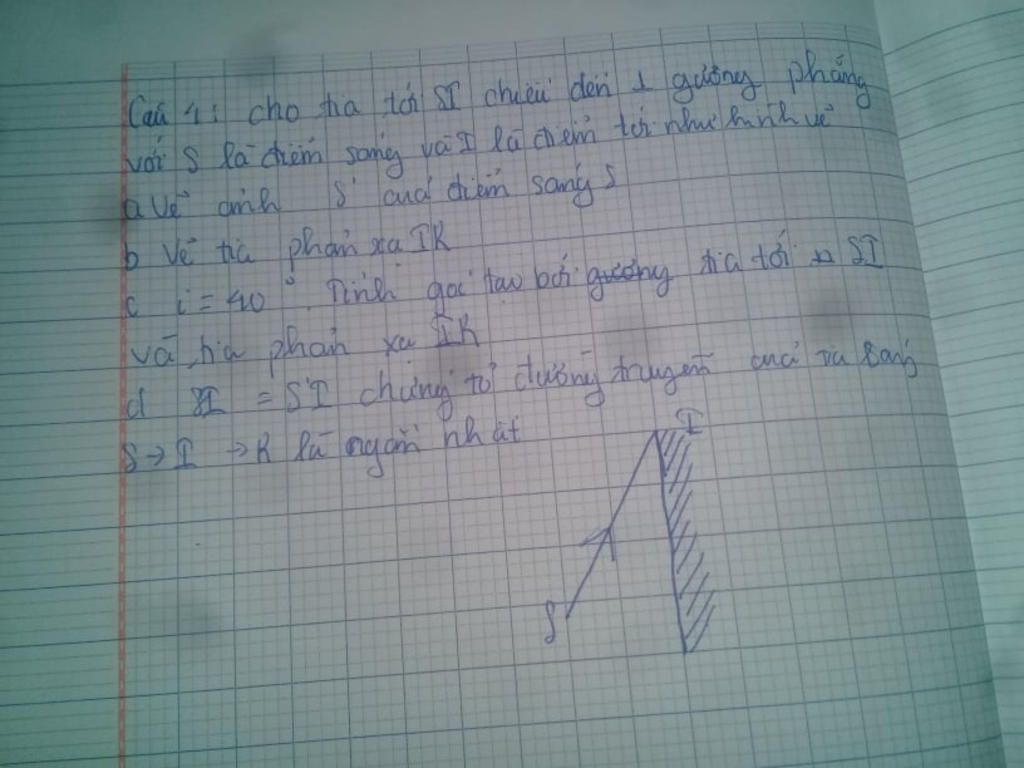 Câu 4: cho tia tới SI chiếu đến 1 gương phẳng
với S là điểm sáng và I là điểm tới như hình vẽ
a Vẽ ảnh S' của điểm sáng S
b Vẽ tia phản xạ IR
c i = 40° Tính góc tạo bởi gương tia tới SI
và tia phản xạ IR
d SI = S'I chứng tỏ đường truyền của tia sáng
S → I → R là ngắn nhất
I
S